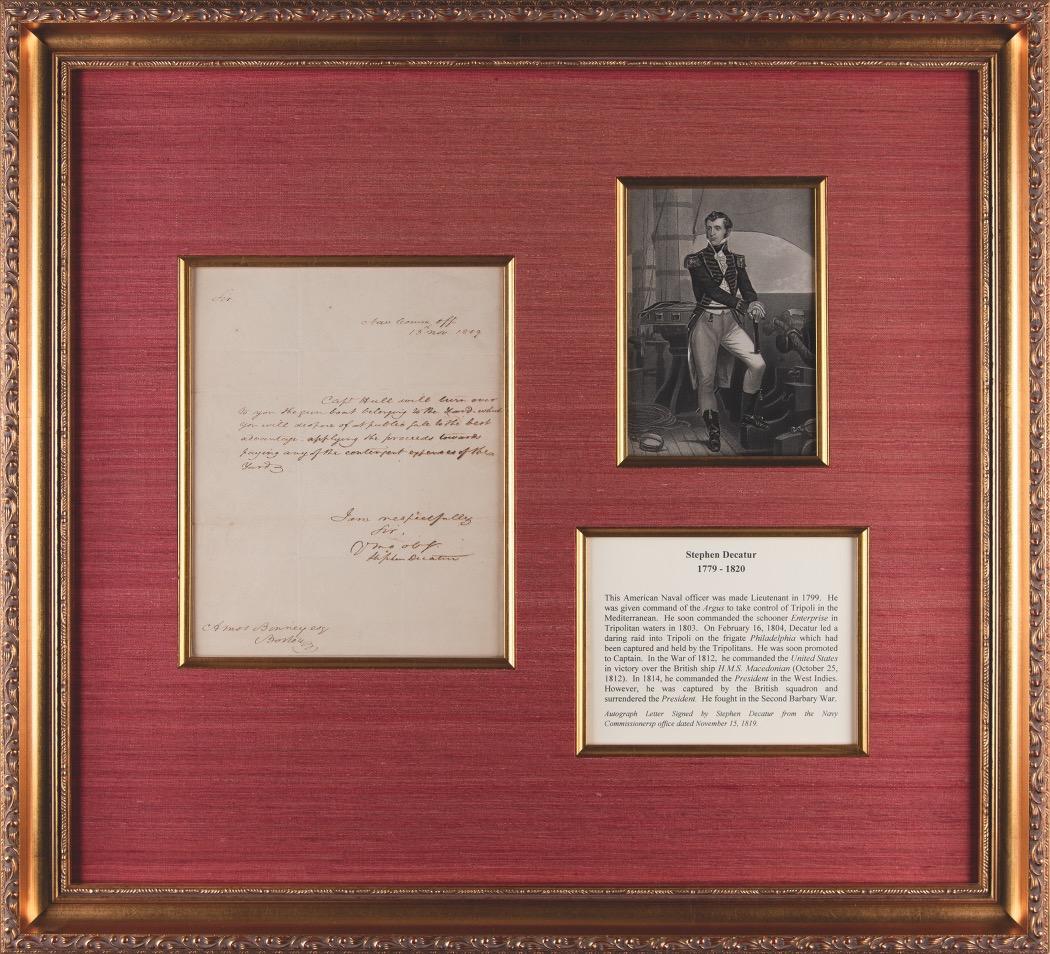 Sir
Nav Comm off
15th Nov 1819
Capt Hull will turn over
to you the gun boat belonging to the Yard which
you will dispose of at public sale to the best
advantage. applying the proceeds towards
paying any of the contingent expenses of the
Yard
I am respectfully
Sir,
Yr mo ob St.
Stephen Decatur
Amos Binney esq
Boston
Stephen Decatur
1779 - 1820
This American Naval officer was made Lieutenant in 1799. He
was given command of the Argus to take control of Tripoli in the
Mediterranean. He soon commanded the schooner Enterprise in
Tripolitan waters in 1803. On February 16, 1804, Decatur led a
daring raid into Tripoli on the frigate Philadelphia which had
been captured and held by the Tripolitans. He was soon promoted
to Captain. In the War of 1812, he commanded the United States
in victory over the British ship H.M.S. Macedonian (October 25,
1812). In 1814, he commanded the President in the West Indies.
However, he was captured by the British squadron and
surrendered the President. He fought in the Second Barbary War.
Autograph Letter Signed by Stephen Decatur from the Navy
Commissionersp office dated November 15, 1819.